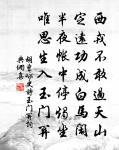 西戎不敢過天山
定遠功成白馬閑
半夜帳中停燭坐
唯思生入玉門關
胡曾詠史詩玉門關